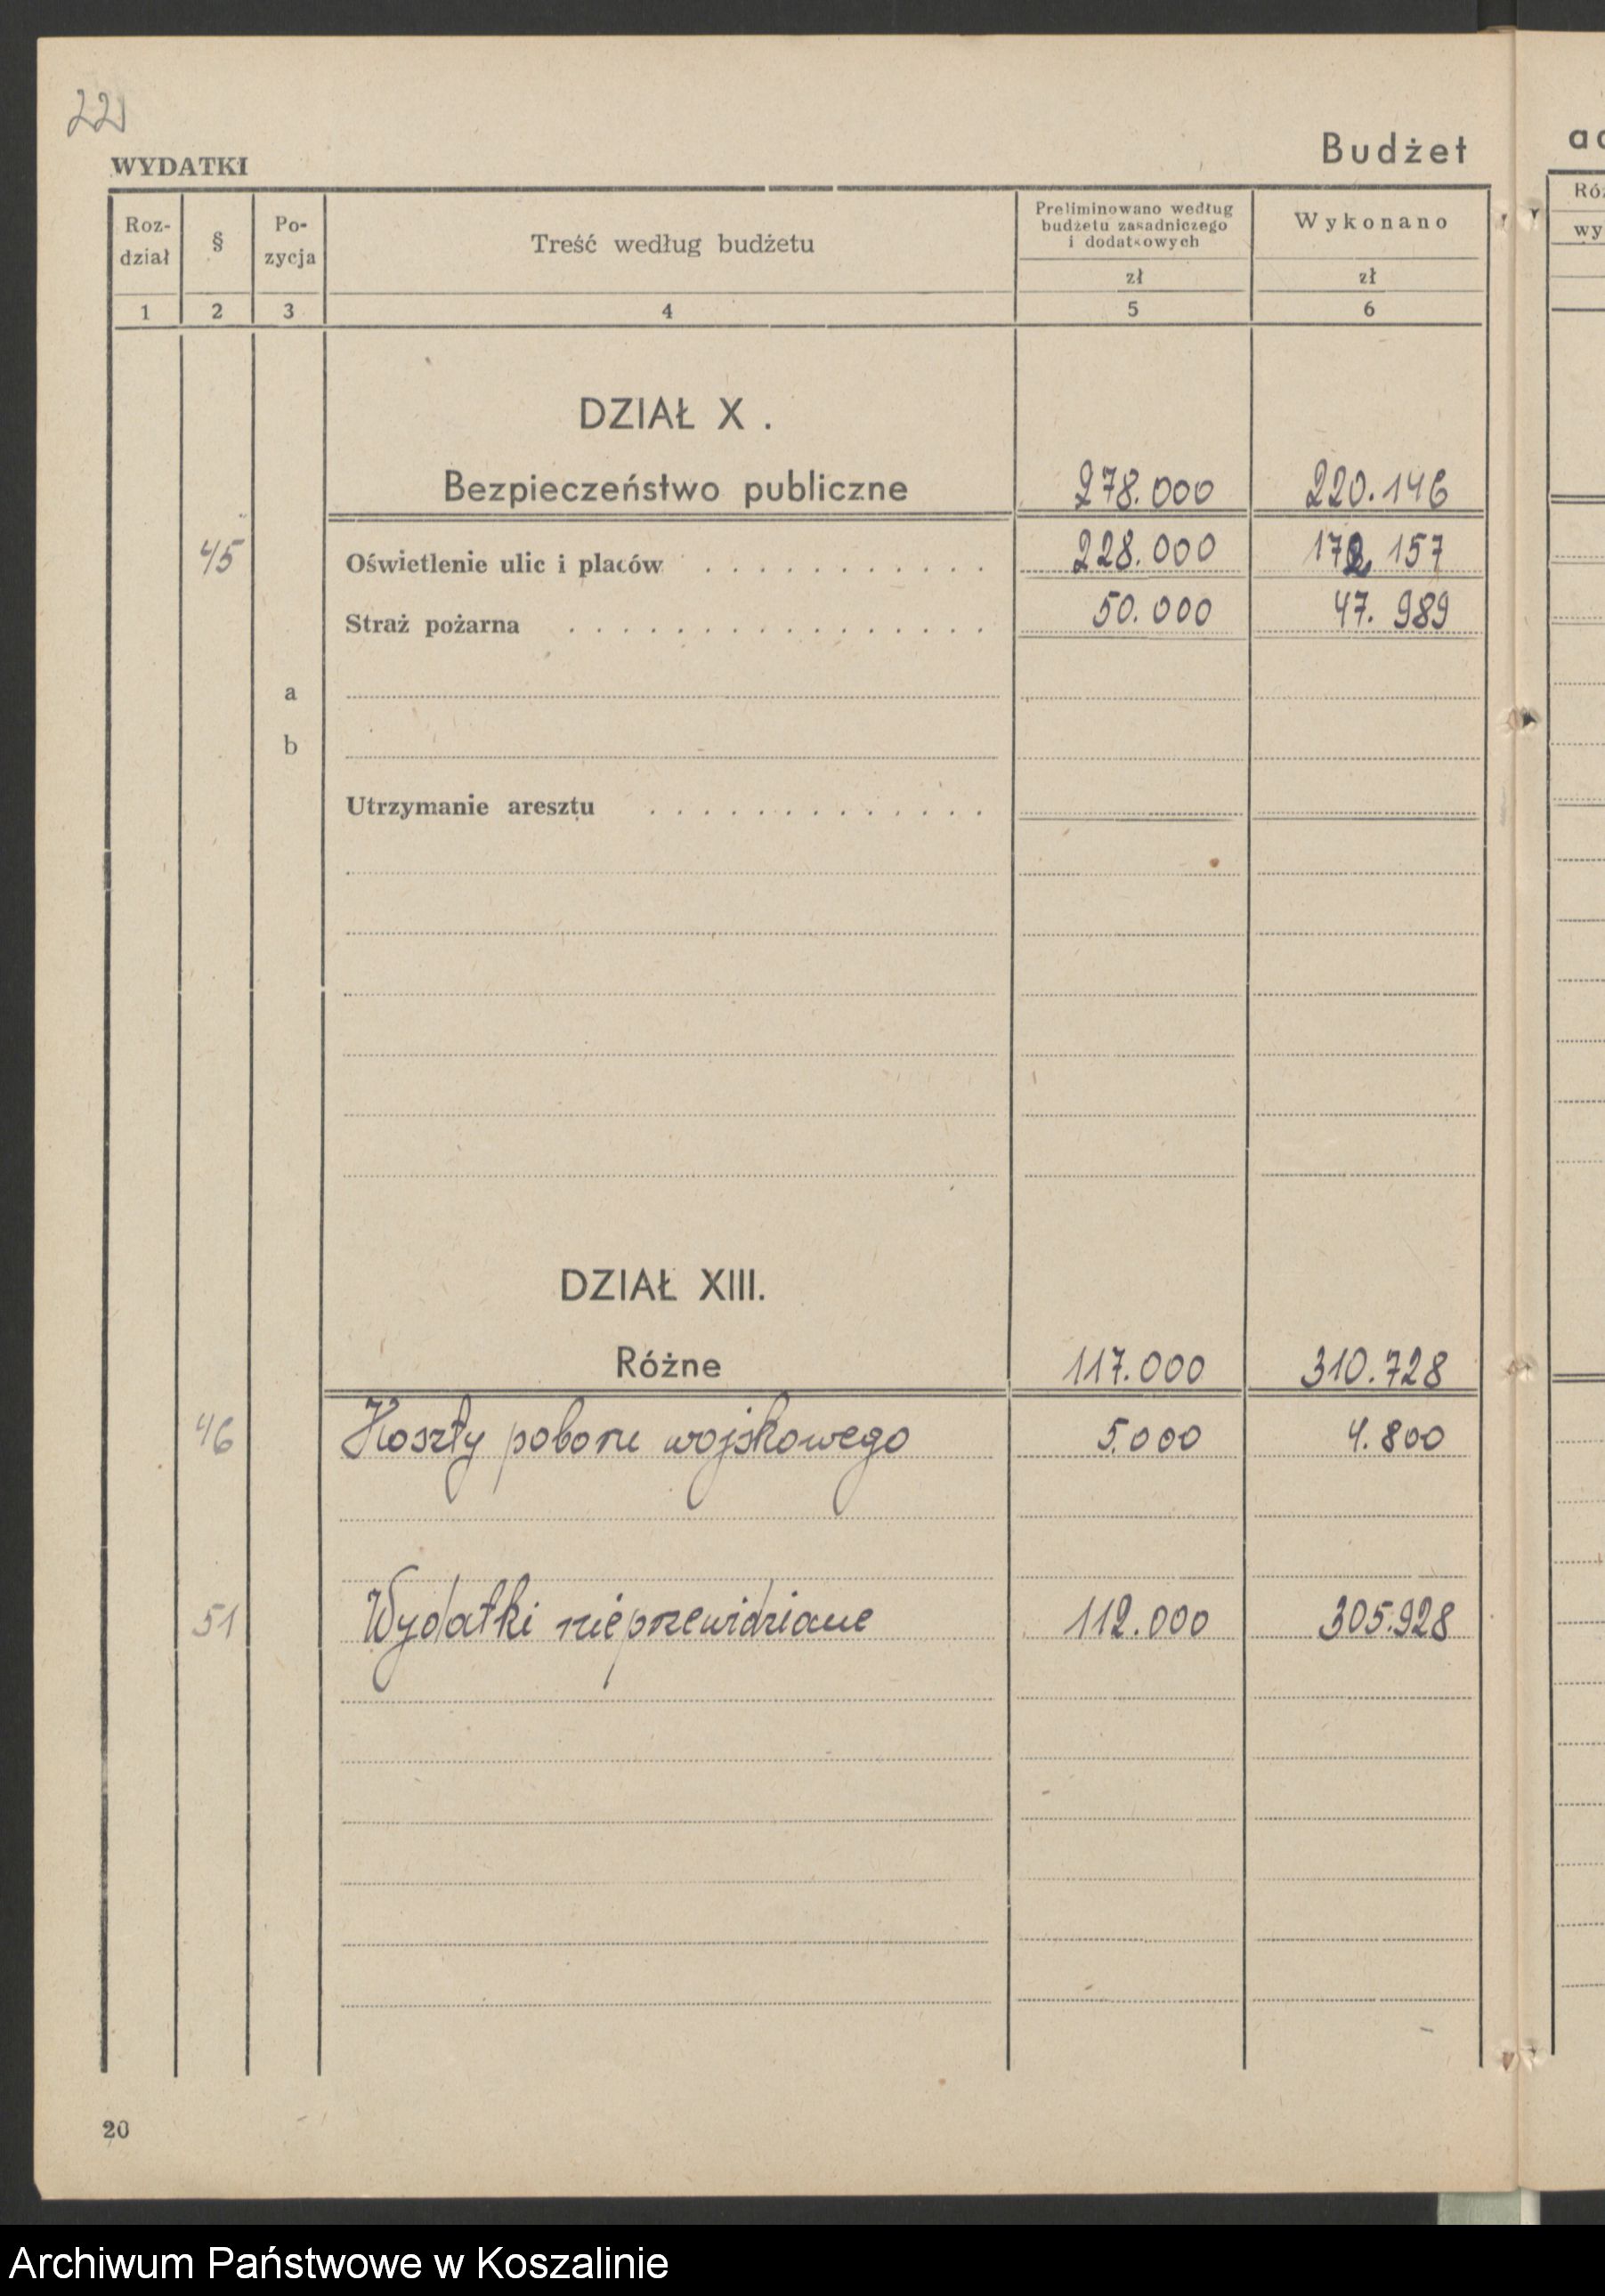 22
WYDATKI
Budżet
Roz-
dział
§
Po-
zycja
Treść według budżetu
Preliminowano według
budżetu zasadniczego
i dodatkowych
Wykonano
zł
zł
1 2 3 4 5 6
DZIAŁ X.
Bezpieczeństwo publiczne 278.000 220.146
45 Oświetlenie ulic i placów 228.000 172.157
Straż pożarna 50.000 47.989
a
b
Utrzymanie aresztu
DZIAŁ XIII.
Różne 117.000 310.728
46 Koszty poboru wojskowego 5.000 4.800
51 Wydatki nieprzewidziane 112.000 305.928
20
Archiwum Państwowe w Koszalinie